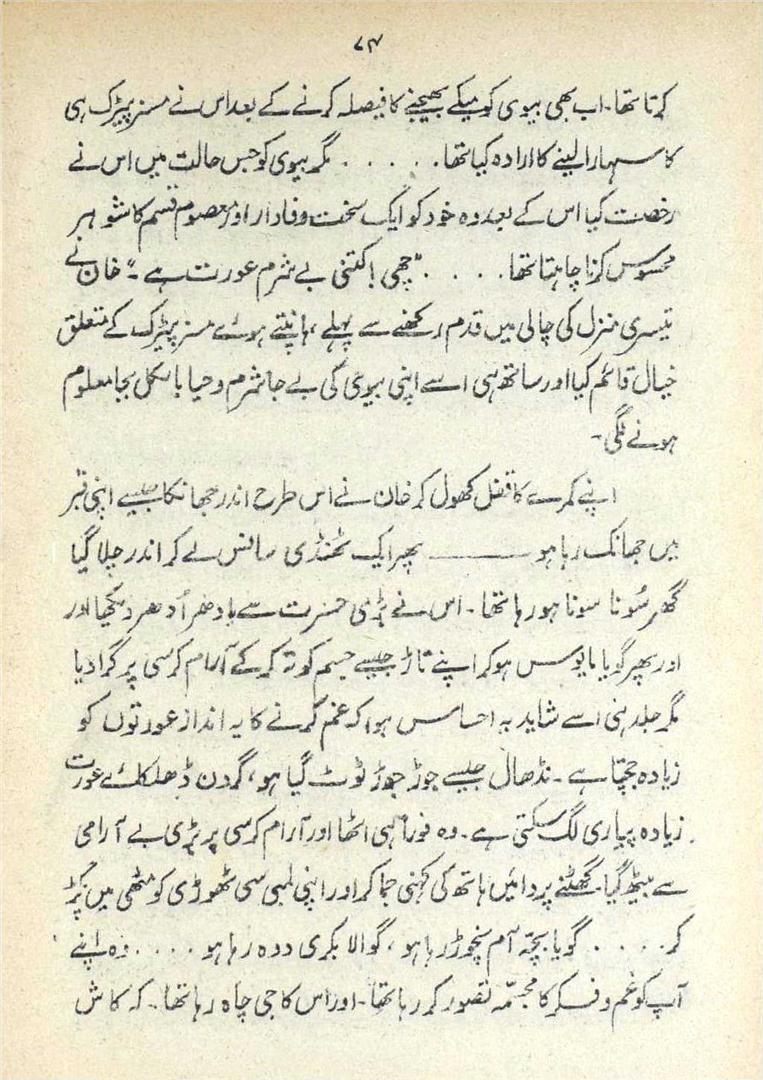 ۷۴
کرتا تھا۔ اب بھی بیوی کو میکے بھیجنے کا فیصلہ کرنے کے بعد اس نے مسز پیٹرک ہی
کا سہارا لینے کا ارادہ کیا تھا. . . . . مگر بیوی کو جس حالت میں اس نے
رخصت کیا اس کے بعد وہ خود کو ایک سخت وفادار اور معصوم قسم کا شوہر
محسوس کرنا چاہتا تھا. . . . . "چھی! کتنی بے شرم عورت ہے۔" خان نے
تیسری منزل کی چالی میں قدم رکھنے سے پہلے ہانپتے ہوئے مسز پیٹرک کے متعلق
خیال قائم کیا اور ساتھ ہی اسے اپنی بیوی کی بے جا شرم و حیا بالکل بجا معلوم
ہونے لگی۔
اپنے کمرے کا قفل کھول کر خان نے اس طرح اندر جھانکا جیسے اپنی قبر
میں جھانک رہا ہو ——— پھر ایک ٹھنڈی سانس لے کر اندر چلا گیا
گھر سُونا سونا ہو رہا تھا۔ اس نے بڑی حسرت سے ادھر اُدھر دیکھا اور
اور پھر گویا مایوس ہو کر اپنے تاڑ جیسے جسم کو تہ کر کے آرام کرسی پر گرا دیا
مگر جلد ہی اسے شاید یہ احساس ہوا کہ غم کرنے کا یہ انداز عورتوں کو
زیادہ جچتا ہے۔ نڈھال جیسے جوڑ جوڑ ٹوٹ گیا ہو، گردن ڈھلکائے عورت
زیادہ پیاری لگ سکتی ہے۔ وہ فوراً ہی اٹھا اور آرام کرسی پر بڑی بے آرامی
سے بیٹھ گیا۔ گھٹنے پر دائیں ہاتھ کی کہنی جما کر اور اپنی لمبی سی ٹھوڑی کو مٹھی میں پکڑ
کر. . . . . گویا بچہ آم نچوڑ رہا ہو، گوالا بکری دوہ رہا ہو. . . . . وہ اپنے
آپ کو غم و فکر کا مجسّمہ تصور کر رہا تھا۔ اور اس کا جی چاہ رہا تھا۔ کہ کاش